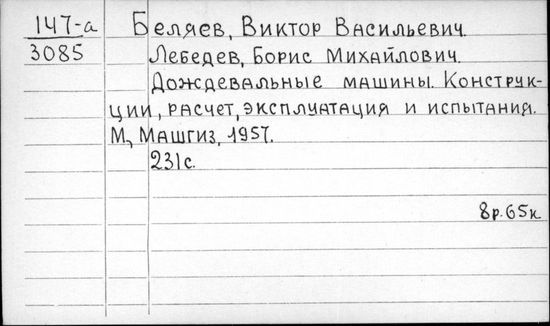 147-а Беляев, Виктор Васильевич.
3085 Лебедев, Борис Михайлович.
Дождевальные машины. Конструк-
ции, расчет, эксплуатация и испытания.
М., Машгиз, 1957.
231с.
8р.65к